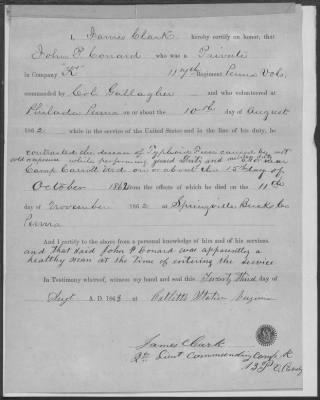 I, James Clark hereby certify on honor, that
John P Conard who was a Private
in Company "K" 117th Regiment Penna Vols,
commanded by Col Gallagher and who volunteered at
Philada Penna on or about the 10th day of August
1862 while in the service of the United States and in the line of his duty, he
contracted the disease of Typhoid Fever caused by wet
and exposure while performing guard Duty and
Camp Carroll Md on or about the 15th day of
October 1862 from the effects of which he died on the 11th
day of November 1862 at Springville Bucks Co
Penna
And I certify to the above from a personal knowledge of him and of his services.
and that said John P Conard was apparently a
healthy man at the time of entering the service
In Testimony whereof, witness my hand and seal this Twenty third day of
Sept A. D. 1863 at Catletts Station Virginia
James Clark
2nd Lieut Commanding Comp K
13 P Cavy